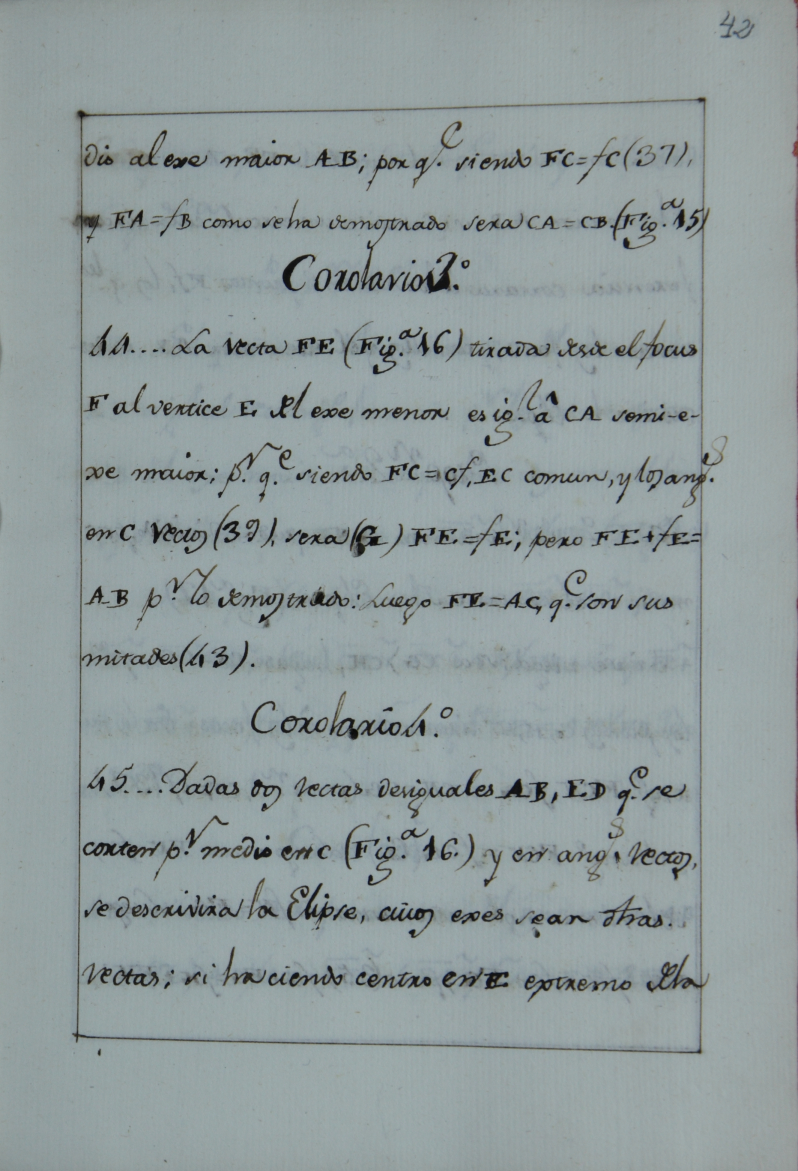 42
dio al exe maior AB; por q.e siendo FC=fC (37),
y FA=fB como se ha demostrado sera CA=CB. (Fig.a 15)
Corolario 3.º
44.... La recta FE (Fig.a 16) tirada desde el focus
F al vertice E del exe menor es ig.l â CA semi-e-
xe maior; p.r q.e siendo FC=Cf, EC comun, y los ang.s
en C rectos (39), sera (G) FE=fE; pero FE+fE=
AB p.r lo demostrado: Luego FE=AC, q.e son sus
mitades (43).
Corolario 4.º
45.... Dadas dos rectas desiguales AB, ED q.e se
corten p.r medio en C (Fig.a 16.) y en ang.s rectos,
se descrivira la Elipse, cuios exes sean dhas.
rectas; si haciendo centro en E extremo dela